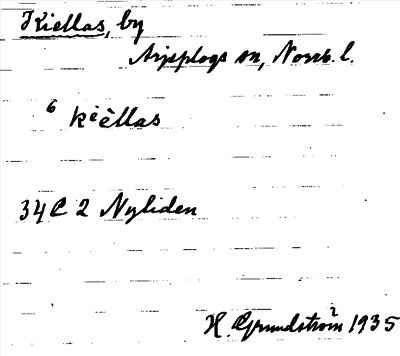 Kiellas, by
Arjeplogs sn, Norrb. l.
6 kièllas
34 C 2 Nyliden
H Grundström 1935